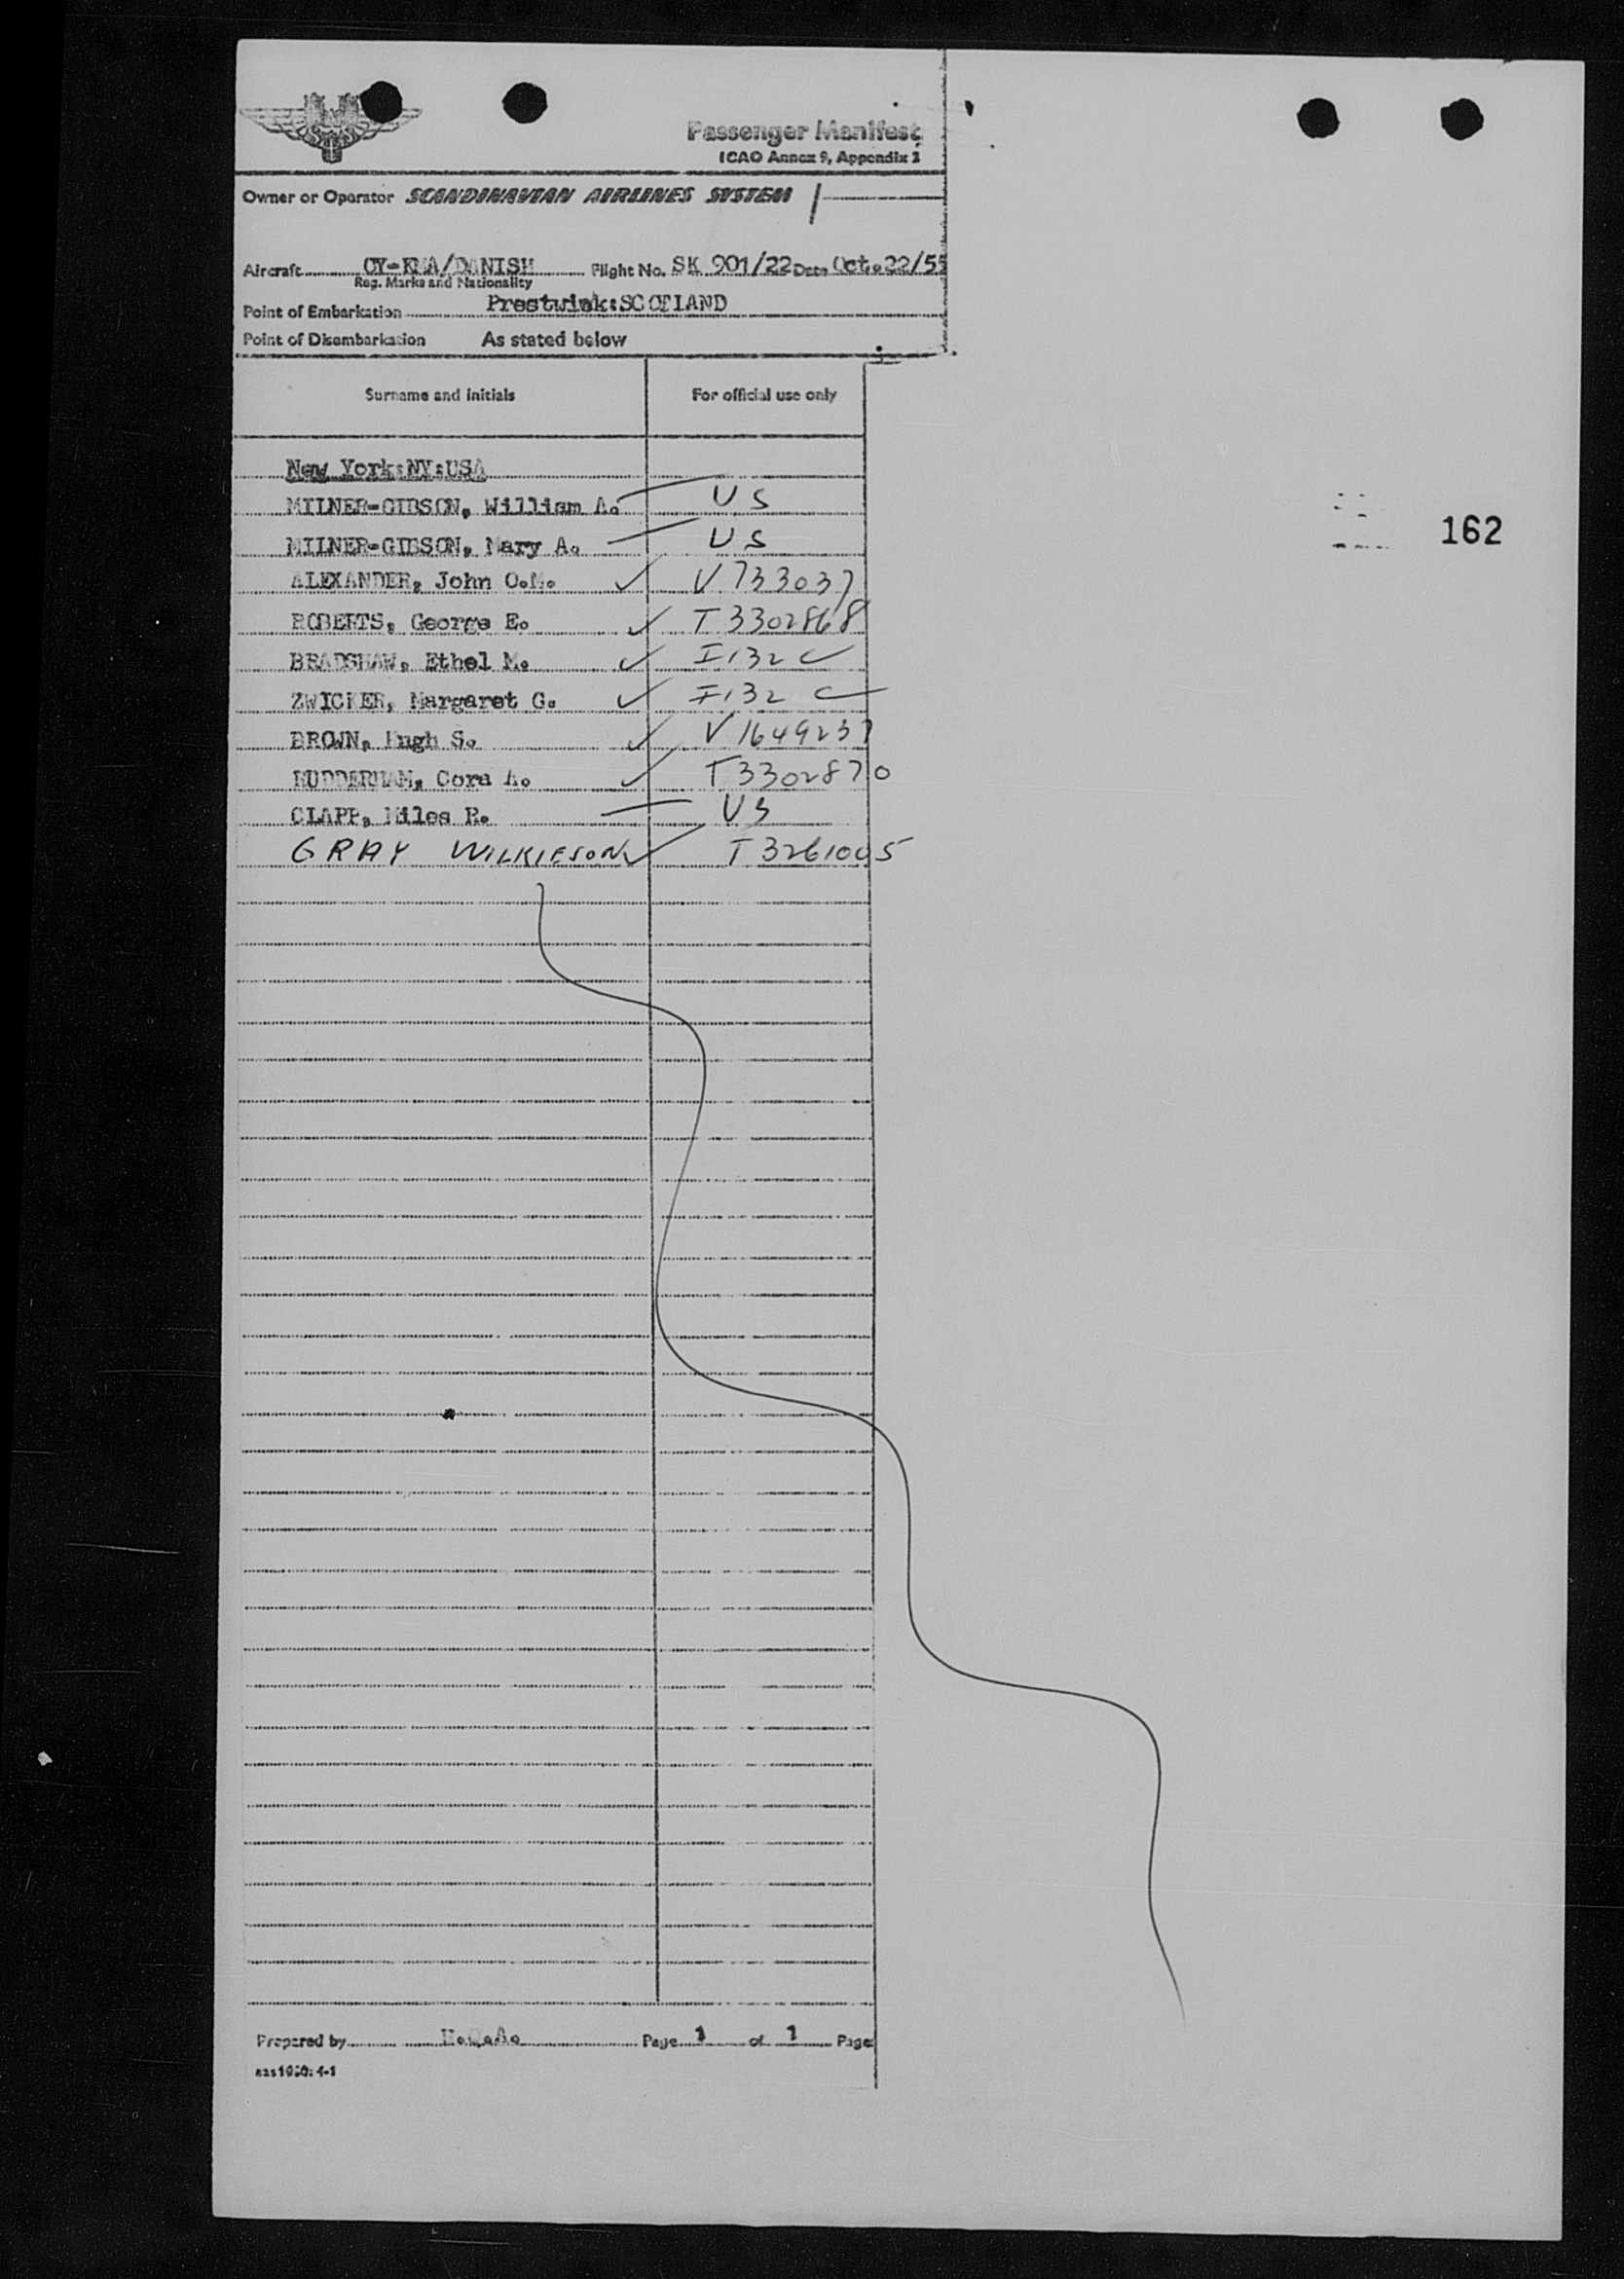 Passenger Manifest
ICAO Annex 9, Appendix 2
Owner or Operator SCANDINAVIAN AIRLINES SYSTEM
Aircraft OY-KMA/DANISH Flight No. SK 901/22 Date Oct. 22/55
Reg. Marks and Nationality
Point of Embarkation Prestwink:SCOTLAND
Point of Disembarkation As stated below
Surname and initials For official use only
New York:NY:USA
MILNER-GIBSON, William A. US
MILNER-GIBSON, Mary A. US
ALEXANDER, John O.M. ✓ V 733037
ROBERTS, George E. ✓ T 3302868
BRADSHAW, Ethel M. ✓ I132 C
ZWICKER, Margaret G. ✓ I132 C
BROWN, Hugh S. ✓ V 1649237
Cora A. ✓ T3302870
CLAPP, Miles R. US
GRAY WILKIESON ✓ T 3261005
162
Prepared by Page 1 of 1 Page